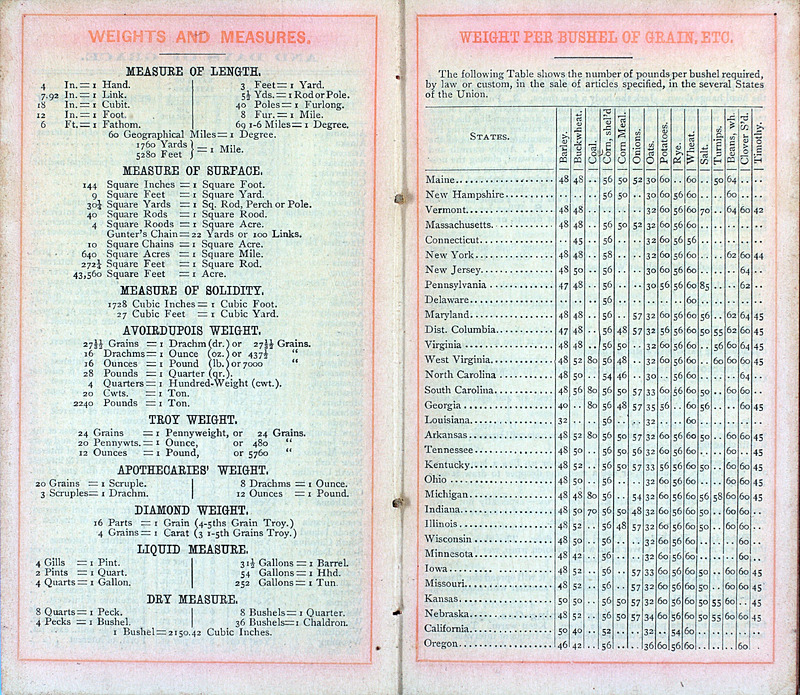 WEIGHTS AND MEASURES.
MEASURE OF LENGTH.
4 In.=1 Hand.
7.92 In.=1 Link.
18 In.=1 Cubit.
12 In.=1 Foot.
6 Ft.=1 Fathom.
3 Feet=1 Yard.
5½ Yds.=1 Rod or Pole.
40 Poles=1 Furlong.
8 Fur.=1 Mile.
69 1-6 Miles=1 Degree.
60 Geographical Miles=1 Degree.
1760 Yards
5280 Feet } =1 Mile.
MEASURE OF SURFACE.
144 Square Inches=1 Square Foot.
9 Square Feet =1 Square Yard.
30¼ Square Yards =1 Sq. Rod, Perch or Pole.
40 Square Rods =1 Square Rood.
4 Square Roods =1 Square Acre.
Gunter's Chain=22 Yards or 100 Links.
10 Square Chains=1 Square Acre.
640 Square Acres =1 Square Mile.
272¼ Square Feet =1 Square Rod.
43,560 Square Feet =1 Acre.
MEASURE OF SOLIDITY.
1728 Cubic Inches=1 Cubic Foot.
27 Cubic Feet =1 Cubic Yard.
AVOIRDUPOIS WEIGHT.
Grains =1 Drachm (dr.) or Grains.
16 Drachms=1 Ounce (oz.) or 437½ "
16 Ounces =1 Pound (lb.) or 7000 "
28 Pounds =1 Quarter (qr.).
4 Quarters=1 Hundred-Weight (cwt.).
20 Cwts. =1 Ton.
2240 Pounds =1 Ton.
TROY WEIGHT.
24 Grains =1 Pennyweight, or 24 Grains.
20 Pennywts.=1 Ounce, or 480 "
12 Ounces =1 Pound, or 5760 "
APOTHECARIES' WEIGHT.
20 Grains =1 Scruple.
3 Scruples=1 Drachm.
8 Drachms=1 Ounce.
12 Ounces =1 Pound.
DIAMOND WEIGHT.
16 Parts =1 Grain (4-5ths Grain Troy.)
4 Grains=1 Carat (3 1-5th Grains Troy.)
LIQUID MEASURE.
4 Gills =1 Pint.
2 Pints =1 Quart.
4 Quarts=1 Gallon.
31½ Gallons=1 Barrel.
54 Gallons=1 Hhd.
252 Gallons=1 Tun.
DRY MEASURE.
8 Quarts=1 Peck.
4 Pecks =1 Bushel.
8 Bushels=1 Quarter.
36 Bushels=1 Chaldron.
1 Bushel=2150.42 Cubic Inches.
WEIGHT PER BUSHEL OF GRAIN, ETC.
The following Table shows the number of pounds per bushel required,
by law or custom, in the sale of articles specified, in the several States
of the Union.
STATES. Barley. Buckwheat. Coal. Corn, shel'd Corn Meal. Onions. Oats. Potatoes. Rye. Wheat. Salt. Turnips. Beans, wh. Clover S'd. Timothy.
Maine 48 48 .. 56 50 52 30 60 .. 60 .. 50 64 .. ..
New Hampshire 56 50 .. 30 60 56 60 .. 60
Vermont 48 48 32 60 56 60 70 .. 64 60 42
Massachusetts. 48 48 .. 56 50 52 32 60 56 60
Connecticut .. 45 .. 56 .. .. 32 60 56 56
New York 48 48 .. 58 .. .. 32 60 56 60 .. .. 62 60 44
New Jersey 48 50 .. 56 .. .. 30 60 56 60 .. .. .. 64 ..
Pennsylvania 47 48 .. 56 .. .. 30 56 56 60 85 .. .. 62 ..
Delaware 56 60
Maryland 48 48 .. 56 .. 57 32 60 56 60 56 .. 62 64 45
Dist. Columbia 47 48 .. 56 48 57 32 56 56 60 50 55 62 60 45
Virginia 48 48 .. 56 50 .. 32 60 56 60 .. 56 60 64 45
West Virginia 48 52 80 56 48 .. 32 60 56 60 .. 60 60 60 45
North Carolina 48 50 .. 54 46 .. 30 .. 56 60 .. .. .. 64 ..
South Carolina 48 56 80 56 50 57 33 60 56 60 50 .. 60 60 ..
Georgia 40 .. 80 56 48 57 35 56 .. 60 56 .. .. 60 45
Louisiana 32 .. .. 56 .. .. 32 .. .. 60
Arkansas 48 52 80 56 50 57 32 60 56 60 50 .. 60 60 45
Tennessee 48 50 .. 56 50 56 32 60 56 60 50 .. 60 60 45
Kentucky 48 52 .. 56 50 57 33 56 56 60 50 .. 60 60 45
Ohio 48 50 .. 56 .. .. 32 60 56 60 .. .. 60 60 45
Michigan 48 48 80 56 .. 54 32 60 56 60 56 58 60 60 45
Indiana 48 50 70 56 50 48 32 60 56 60 50 .. 60 60 45
Illinois 48 52 .. 56 48 57 32 60 56 60 50 .. 60 60 ..
Wisconsin 48 50 .. 56 .. .. 32 60 56 60 .. .. .. 60 ..
Minnesota 48 42 .. 56 .. .. 32 60 56 60 .. .. .. 60 ..
Iowa 48 52 .. 56 .. 57 33 60 56 60 50 .. 60 60 45
Missouri 48 52 .. 56 .. 57 32 60 56 60 50 .. 60 60 45
Kansas 50 50 .. 56 50 57 32 60 56 60 50 55 60 .. 45
Nebraska 48 52 .. 56 50 57 34 60 56 60 50 55 60 60 45
California 50 40 .. 52 .. .. 32 .. 54 60
Oregon 46 42 .. 56 .. .. 36 60 56 60 .. .. .. 60 ..